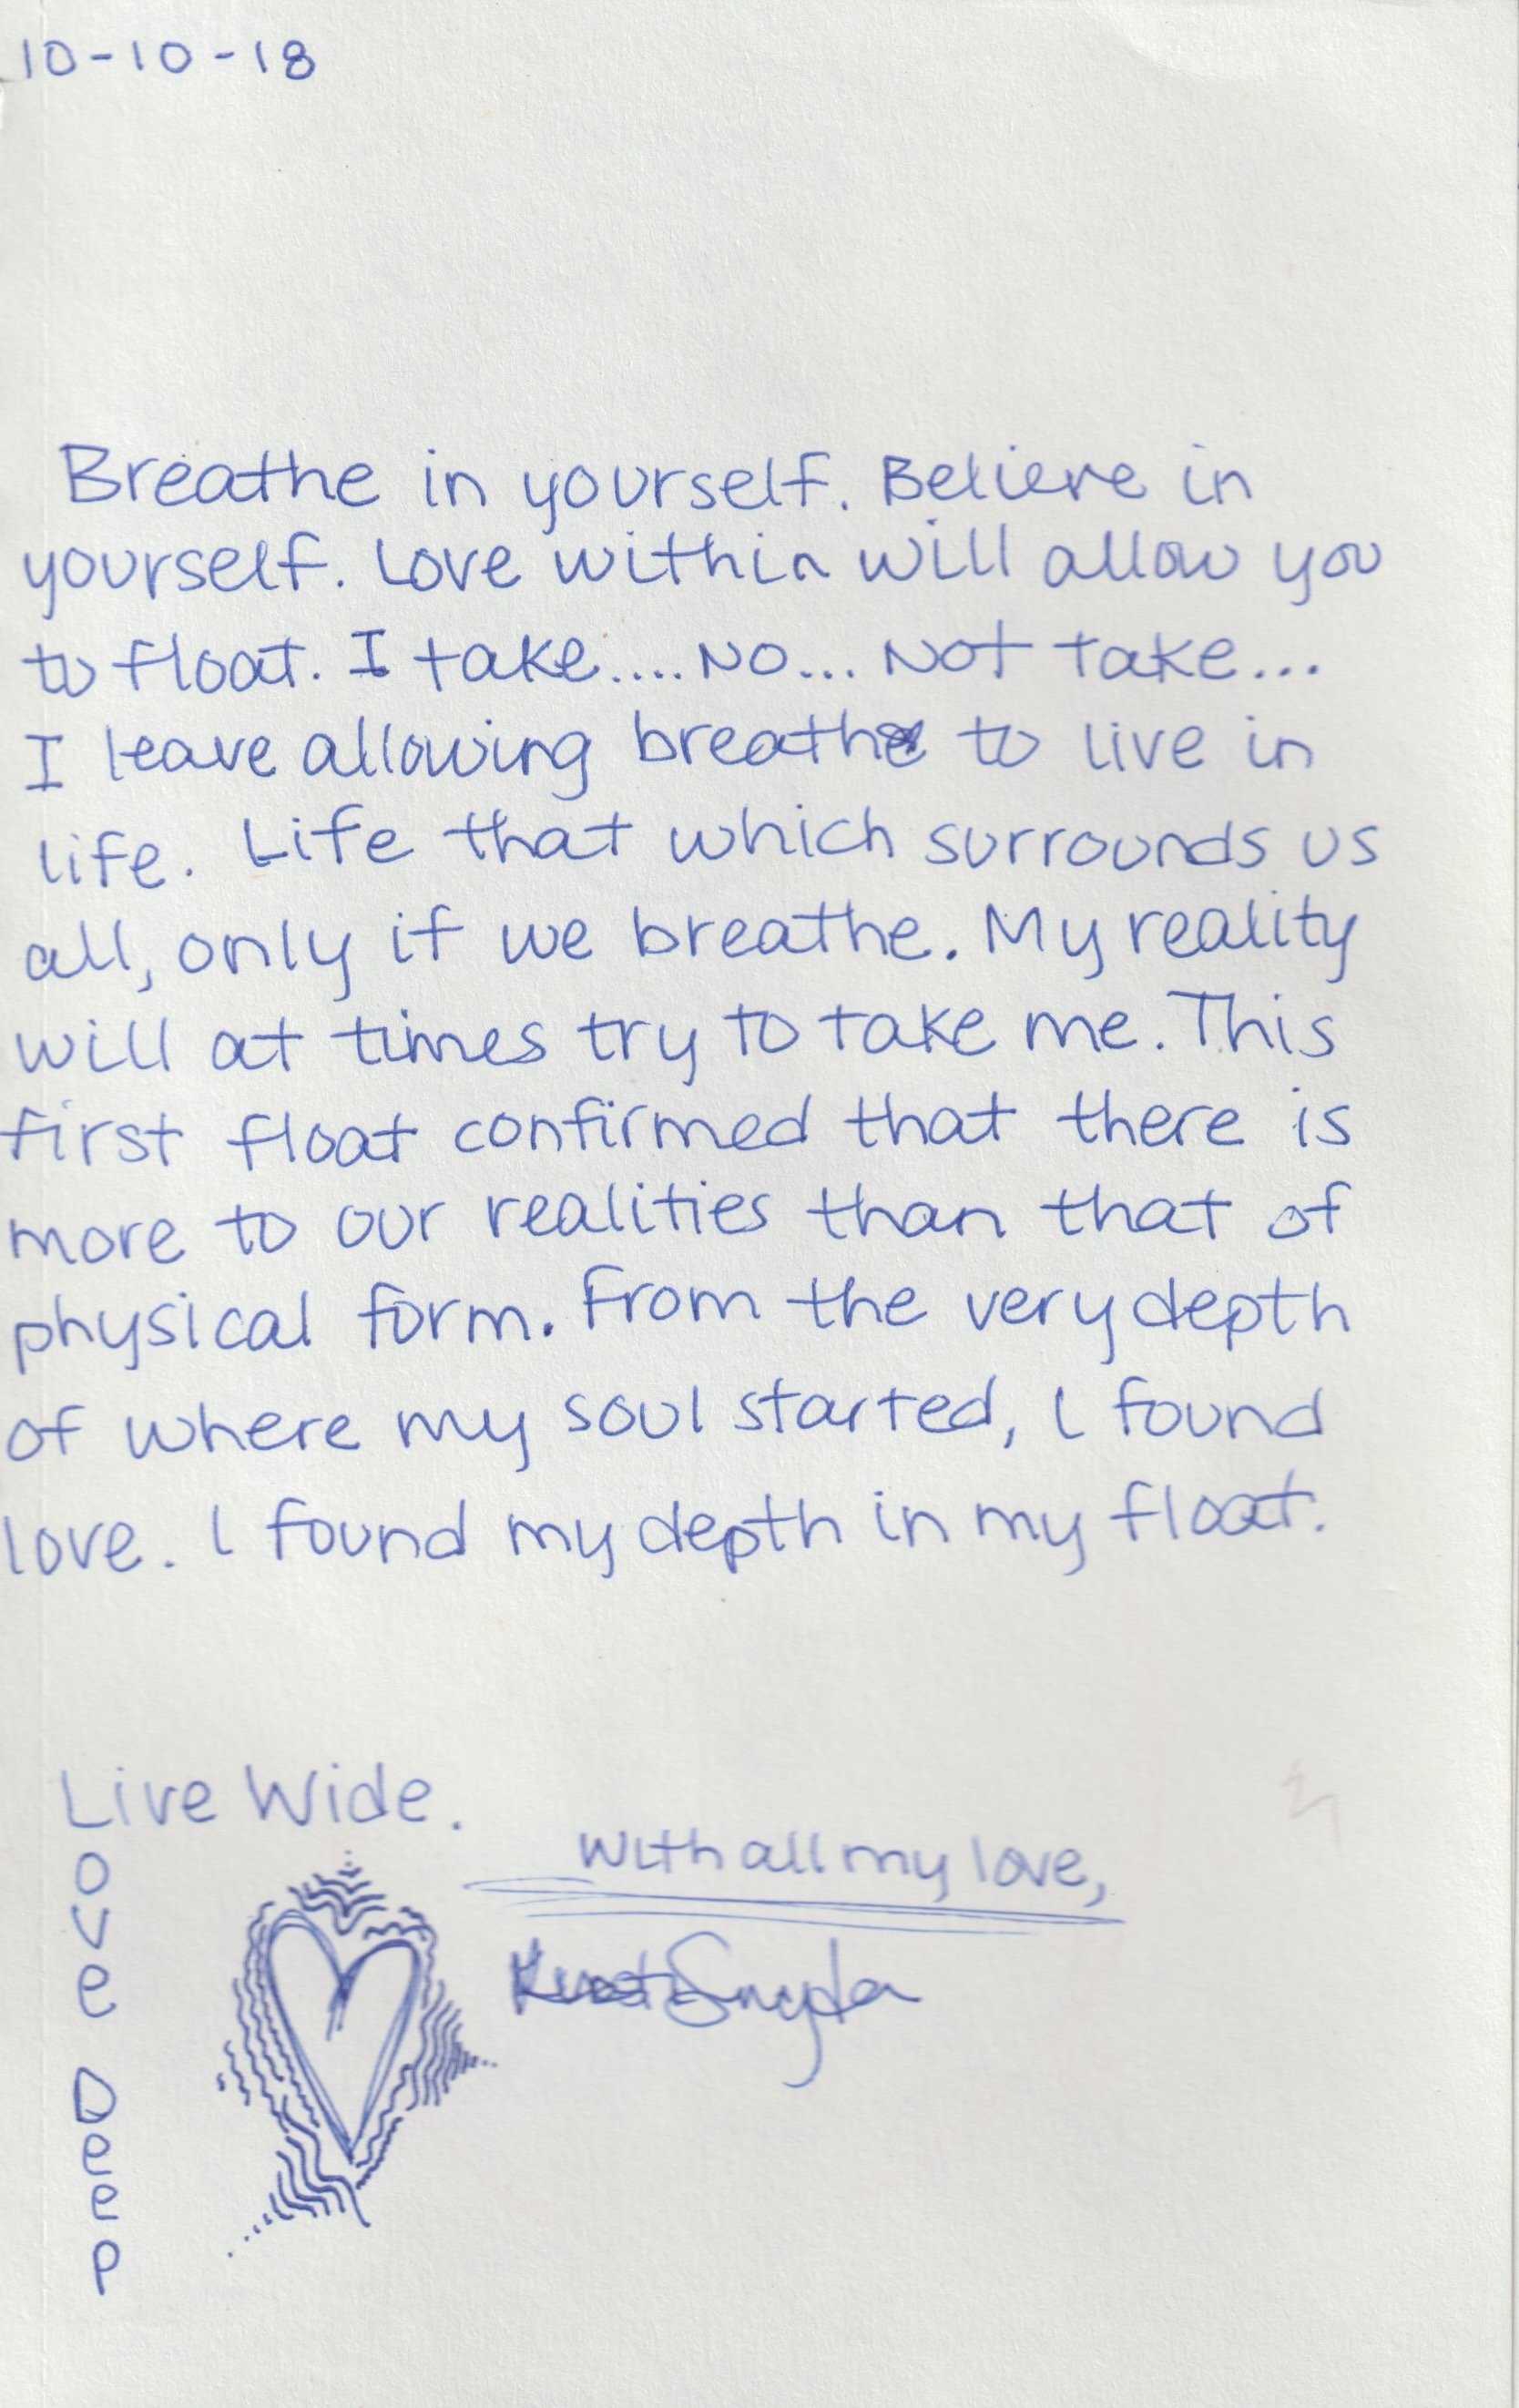 10-10-18
Breathe in yourself. Believe in
yourself. Love within will allow you
to float. I take.... No... Not take...
I leave allowing breathe to live in
life. Life that which surrounds us
all, only if we breathe. My reality
will at times try to take me. This
first float confirmed that there is
more to our realities than that of
physical form. From the very depth
of where my soul started, I found
love. I found my depth in my float.
Live Wide.
o
v
e
D
e
e
p
With all my love,
Snyder